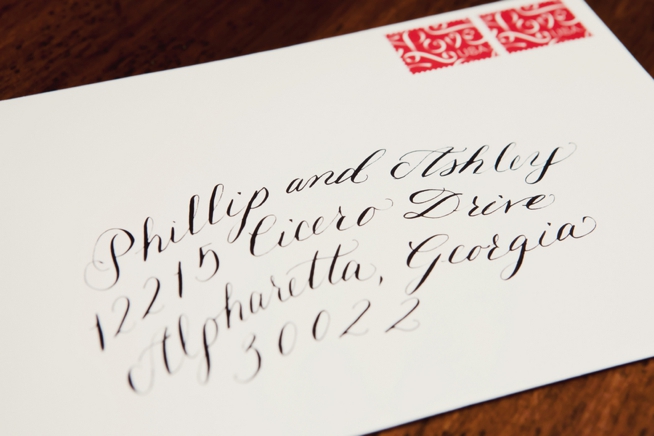 Love USA
Love USA
Phillip and Ashley
12215 Cicero Drive
Alpharetta, Georgia
30022